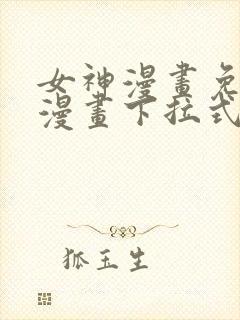 女神漫畫免
漫畫下拉式
狐玉生